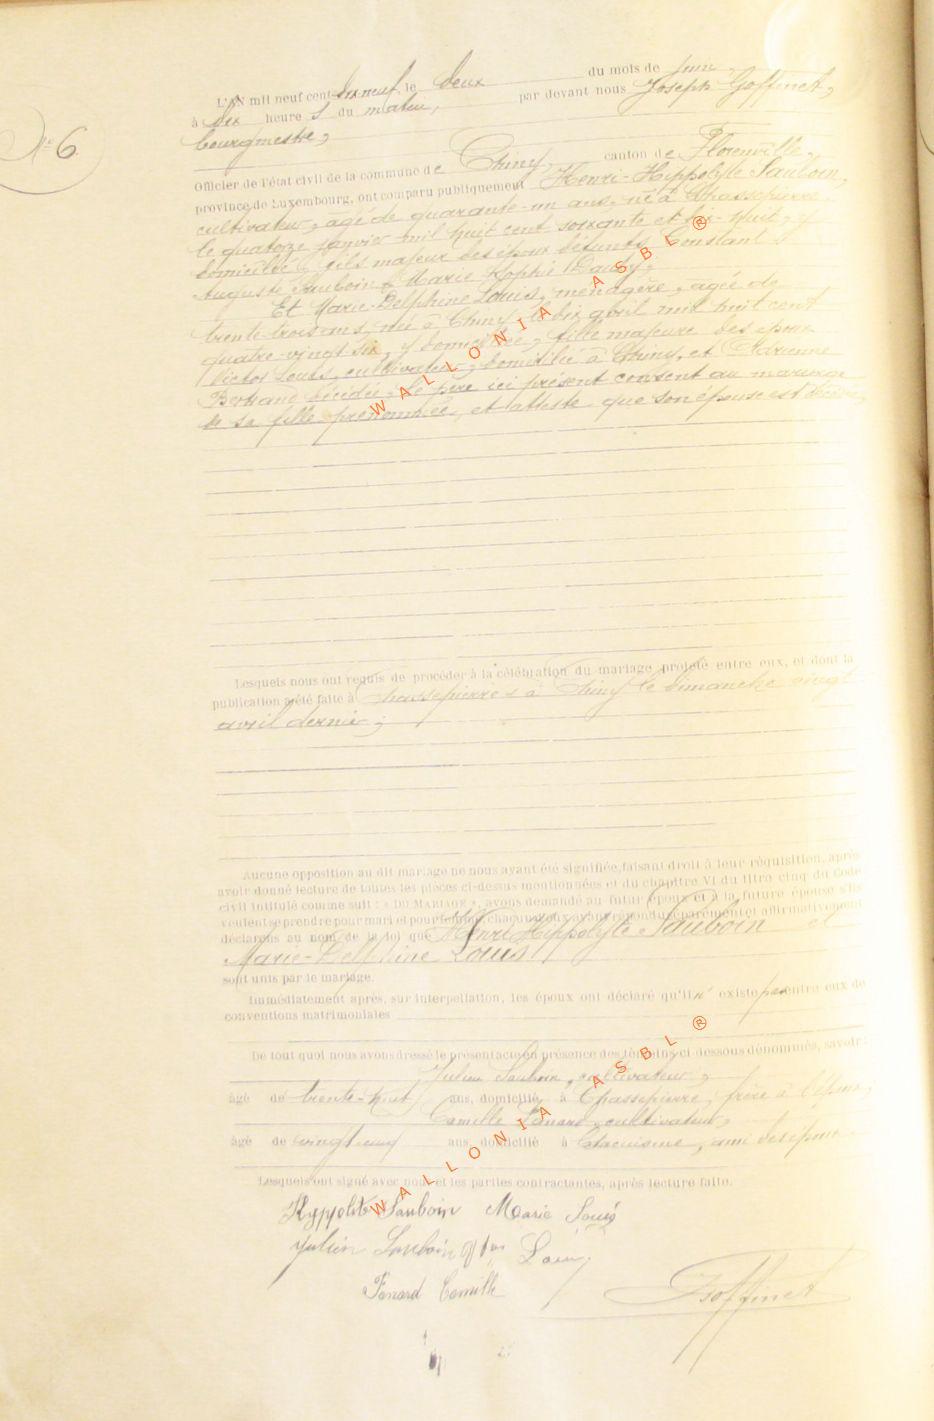 N° 6
L'AN mil neuf cent dix neuf, le deux du mois de juin,
à dix heure s du matin, par devant nous Joseph Goffinet,
bourgmestre,
Officier de l'état civil de la commune de Chiny, canton de Florenville,
province de Luxembourg, ont comparu publiquement Henri-Hippolyte Sauboin,
cultivateur, âgé de quarante-un ans, né à Chassepierre,
le quatorze janvier mil huit cent soixante et dix-huit, y
domicilié, fils majeur des époux défunts Constant
Auguste Sauboin & Marie Sophie
Et Marie-Delphine Louis, ménagère, âgée de
trente-trois ans, née à Chiny, le dix avril mil huit cent
quatre-vingt six, y domiciliée, fille majeure des époux
Victor Louis, cultivateur, domicilié à Chiny, et Adrienne
décédée. Le père ici présent consent au mariage
de sa fille prénommée, et atteste que son épouse est décédée,
Lesquels nous ont requis de procéder à la célébration du mariage projeté entre eux, et dont la
publication a été faite à Chassepierre & à Chiny le dimanche vingt
avril dernier,
Aucune opposition au dit mariage ne nous ayant été signifiée, faisant droit à leur réquisition, après
avoir donné lecture de toutes les pièces ci-dessus mentionnées et du chapitre VI du titre cinq du Code
civil intitulé comme suit : « DU MARIAGE », avons demandé au futur époux et à la future épouse s'ils
veulent se prendre pour mari et pour femme, chacun d'eux ayant répondu séparément et affirmativement
déclarons au nom de la loi que Henri Hippolyte Sauboin et
Marie-Delphine Louis
sont unis par le mariage.
Immédiatement après, sur interpellation, les époux ont déclaré qu'il n' existe pas entre eux de
conventions matrimoniales
De tout quoi nous avons dressé le présent acte en présence des témoins ci-dessous dénommés, savoir :
Julien Sauboin, cultivateur,
âgé de trente-huit ans, domicilié à Chassepierre, frère à l'époux,
Camille Fonard, cultivateur,
âgé de vingt ans, domicilié à Lacuisine, ami des époux
Lesquels ont signé avec nous et les parties contractantes, après lecture faite.
Hyppolite Sauboin Marie Louis
Julien Sauboin Louis
Fonard Camille Goffinet
WALLONIA ASBL ®
WALLONIA ASBL ®